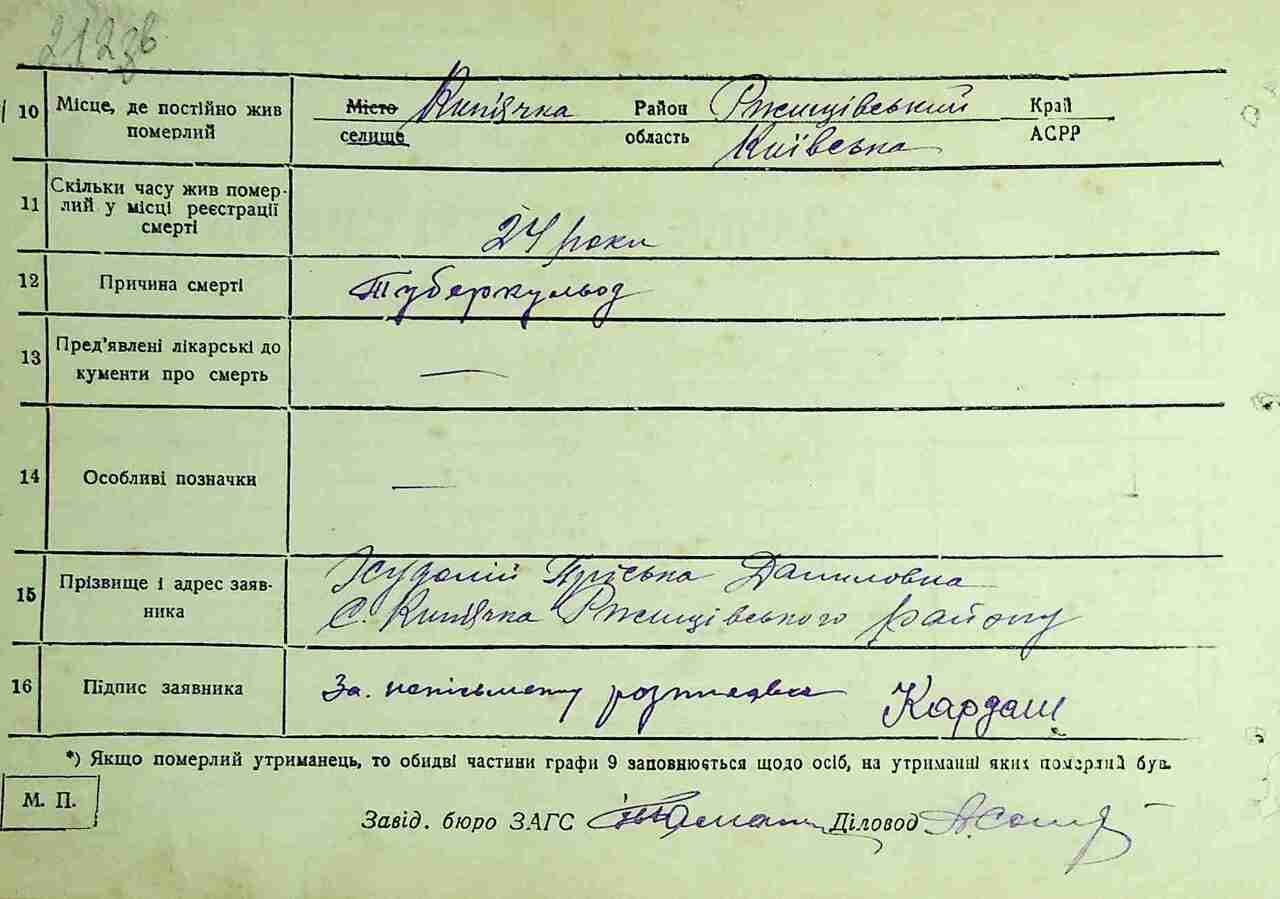 212зв
10 Місце, де постійно жив померлий Місто селище Кип'ячка Район область Ржищівський Київська Край АСРР
11 Скільки часу жив помер-
лий у місці реєстрації
смерті 24 роки
12 Причина смерті Туберкульод
13 Пред'явлені лікарські до
кументи про смерть —
14 Особливі позначки —
15 Прізвище і адрес заяв-
ника Худолій Пріська Даниловна
С. Кип'ячка Ржищівського району
16 Підпис заявника За. непісьмену розписався Кардаш
*) Якщо померлий утриманець, то обидві частини графи 9 заповнюється щодо осіб, на утриманні яких померлий був.
М. П.
Завід. бюро ЗАГС Діловод